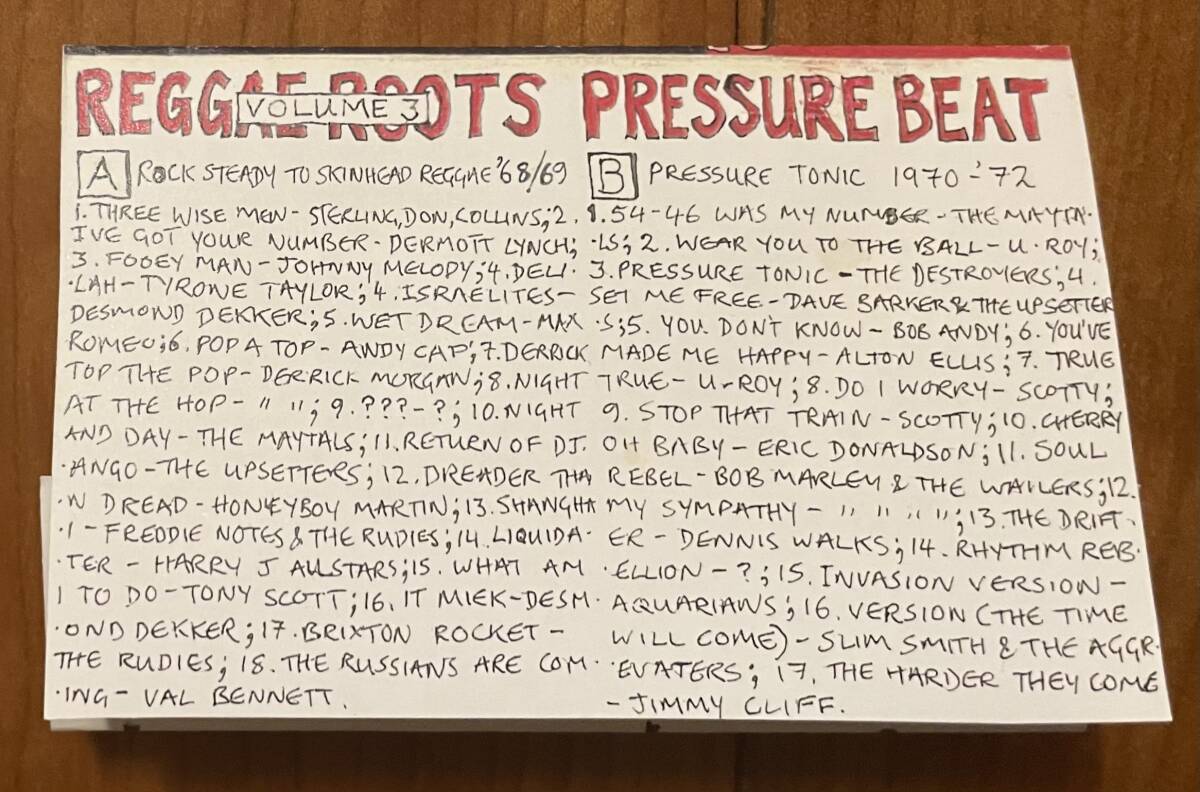 REGGAE ROOTS PRESSURE BEAT
VOLUME 3
A ROCK STEADY TO SKINHEAD REGGAE '68/69
1. THREE WISE MEN - STERLING, DON, COLLINS; 2.
I'VE GOT YOUR NUMBER - DERMOTT LYNCH;
3. FOOEY MAN - JOHNNY MELODY; 4. DELI-
-LAH - TYRONE TAYLOR; 4. ISRAELITES -
DESMOND DEKKER; 5. WET DREAM - MAX
ROMEO; 6. POP A TOP - ANDY CAP; 7. DERRICK
TOP THE POP - DERRICK MORGAN; 8. NIGHT
AT THE HOP - " "; 9. ??? - ?; 10. NIGHT
AND DAY - THE MAYTALS; 11. RETURN OF DJ-
-ANGO - THE UPSETTERS; 12. DREADER THA
-N DREAD - HONEYBOY MARTIN; 13. SHANGHA
-I - FREDDIE NOTES & THE RUDIES; 14. LIQUIDA-
-TER - HARRY J ALLSTARS; 15. WHAT AM
I TO DO - TONY SCOTT; 16. IT MIEK - DESM-
-OND DEKKER; 17. BRIXTON ROCKET -
THE RUDIES; 18. THE RUSSIANS ARE COM-
-ING - VAL BENNETT.
B PRESSURE TONIC 1970-'72
1. 54-46 WAS MY NUMBER - THE MAYTA-
-LS; 2. WEAR YOU TO THE BALL - U-ROY;
3. PRESSURE TONIC - THE DESTROYERS; 4.
SET ME FREE - DAVE BARKER & THE UPSETTER
-S; 5. YOU DON'T KNOW - BOB ANDY; 6. YOU'VE
MADE ME HAPPY - ALTON ELLIS; 7. TRUE
TRUE - U-ROY; 8. DO I WORRY - SCOTTY;
9. STOP THAT TRAIN - SCOTTY; 10. CHERRY
OH BABY - ERIC DONALDSON; 11. SOUL
REBEL - BOB MARLEY & THE WAILERS; 12.
MY SYMPATHY - " " " "; 13. THE DRIFT-
ER - DENNIS WALKS; 14. RHYTHM REB-
-ELLION - ?; 15. INVASION VERSION -
AQUARIANS; 16. VERSION (THE TIME
WILL COME) - SLIM SMITH & THE AGGR-
-EVATERS; 17. THE HARDER THEY COME
- JIMMY CLIFF.